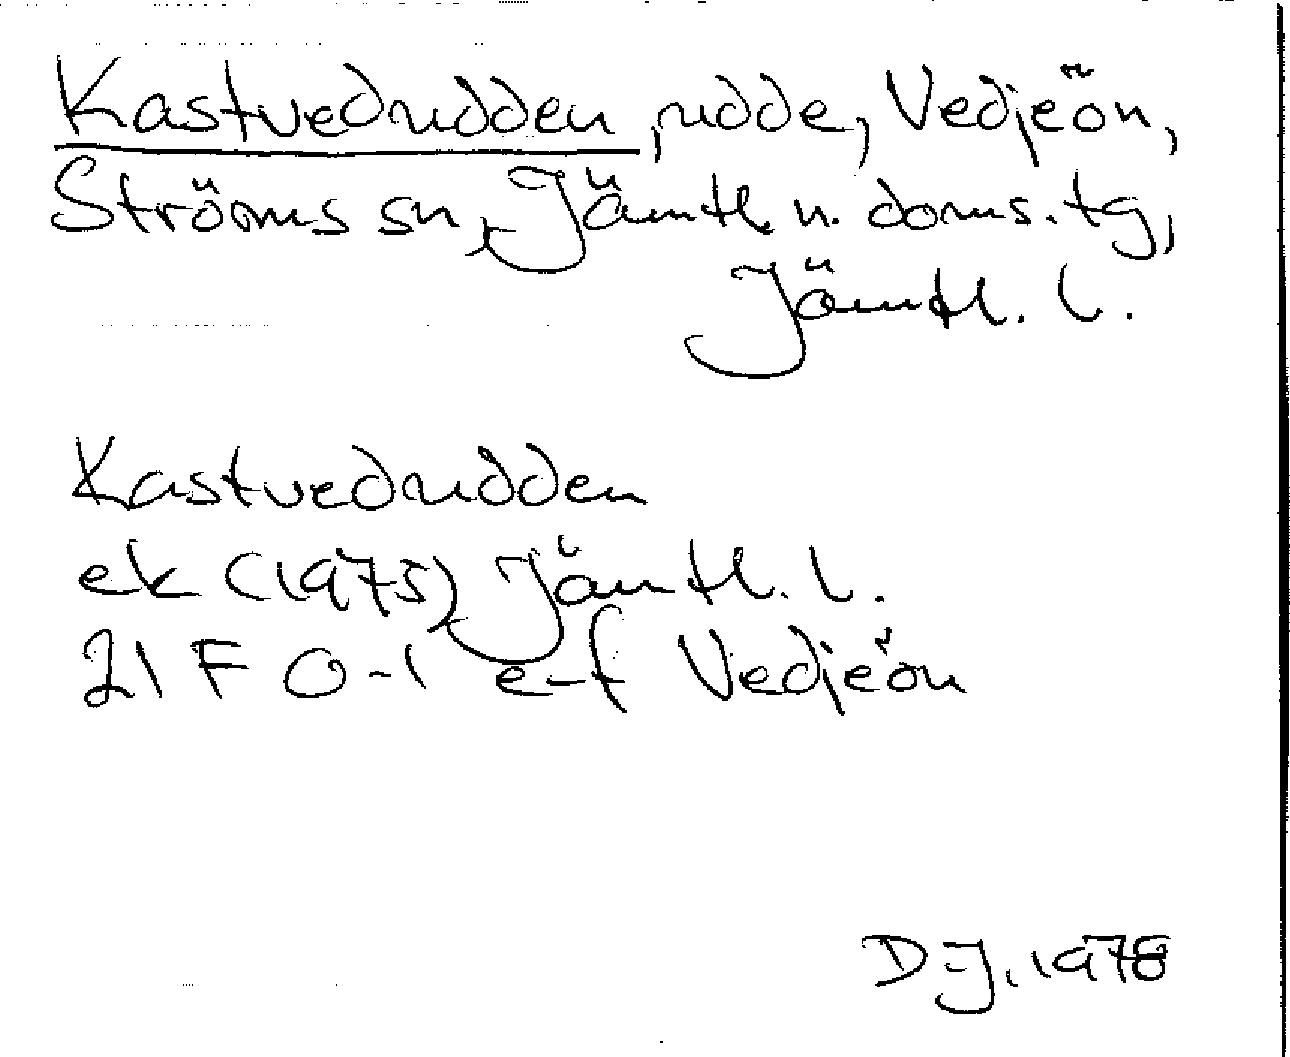 Kastvedrudden, rudde, Vedjeön,
Ströms sn, Jämtl. n. doms. tg,
Jämtl. l.
Kastvedrudden
ek (1975) Jämtl. l.
21 F 0-1 e-f Vedjeön
D-J, 1978